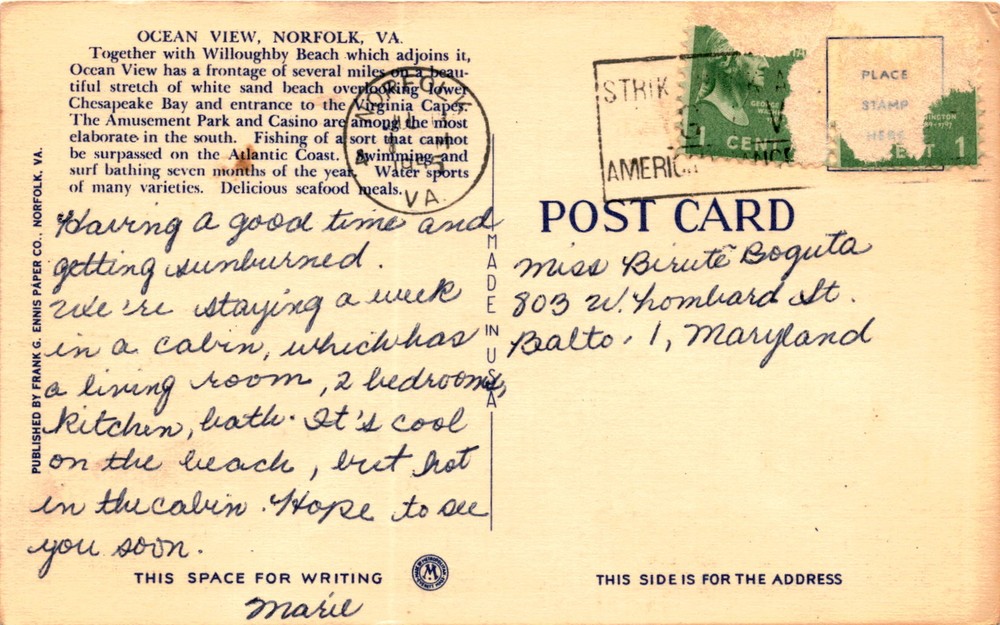 OCEAN VIEW, NORFOLK, VA.
Together with Willoughby Beach which adjoins it,
Ocean View has a frontage of several miles on a beau-
tiful stretch of white sand beach overlooking lower
Chesapeake Bay and entrance to the Virginia Capes.
The Amusement Park and Casino are among the most
elaborate in the south. Fishing of a sort that cannot
be surpassed on the Atlantic Coast. Swimming and
surf bathing seven months of the year. Water sports
of many varieties. Delicious seafood meals.
PUBLISHED BY FRANK G. ENNIS PAPER CO., NORFOLK, VA.
NORFOLK
VA.
STRIK
AMERIC
GEORGE
1 CENT
PLACE
STAMP
HERE
1
POST CARD
MADE IN USA
Having a good time and
getting sunburned.
We're staying a week
in a cabin, which has
a living room, 2 bedrooms,
kitchen, bath. It's cool
on the beach, but hot
in the cabin. Hope to see
you soon.
Marie
Miss Birute Boguta
803 W. Lombard St.
Balto. 1, Maryland
THIS SPACE FOR WRITING
M
THIS SIDE IS FOR THE ADDRESS